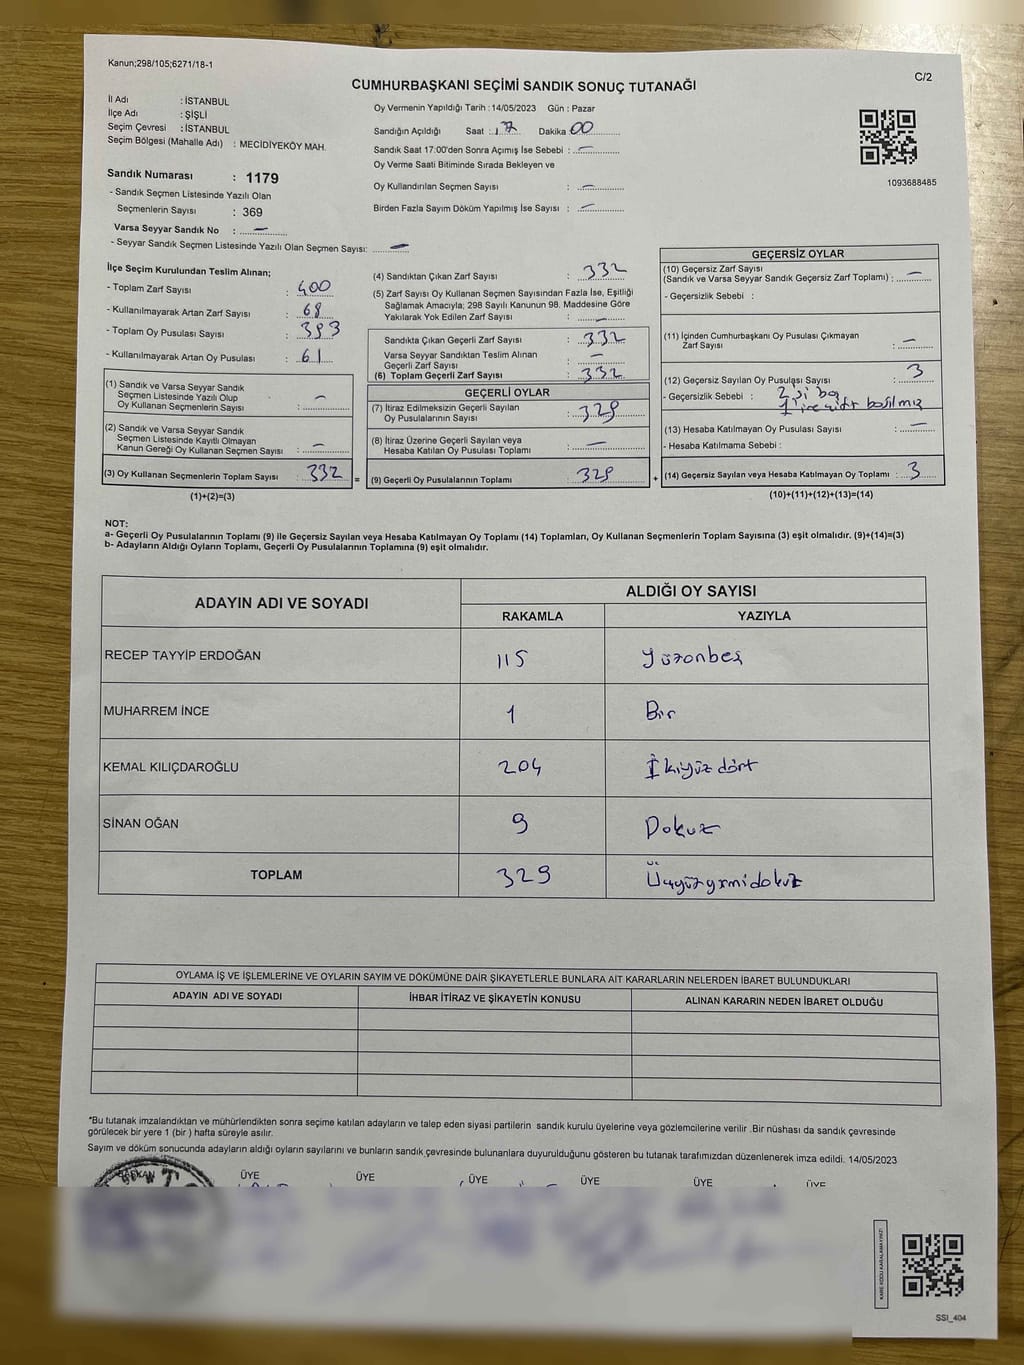 Kanun;298/105;6271/18-1
C/2
CUMHURBAŞKANI SEÇİMİ SANDIK SONUÇ TUTANAĞI
İl Adı : İSTANBUL
İlçe Adı : ŞİŞLİ
Seçim Çevresi : İSTANBUL
Seçim Bölgesi (Mahalle Adı) : MECİDİYEKÖY MAH.
Sandık Numarası : 1179
- Sandık Seçmen Listesinde Yazılı Olan
Seçmenlerin Sayısı : 369
Varsa Seyyar Sandık No : —
- Seyyar Sandık Seçmen Listesinde Yazılı Olan Seçmen Sayısı: —
Oy Vermenin Yapıldığı Tarih : 14/05/2023 Gün : Pazar
Sandığın Açıldığı Saat : 17 Dakika 00
Sandık Saat 17:00'den Sonra Açımış İse Sebebi : —
Oy Verme Saati Bitiminde Sırada Bekleyen ve
Oy Kullandırılan Seçmen Sayısı : —
Birden Fazla Sayım Döküm Yapılmış İse Sayısı : —
1093688485
İlçe Seçim Kurulundan Teslim Alınan;
- Toplam Zarf Sayısı : 400
- Kullanılmayarak Artan Zarf Sayısı : 68
- Toplam Oy Pusulası Sayısı : 393
- Kullanılmayarak Artan Oy Pusulası : 61
(1) Sandık ve Varsa Seyyar Sandık
Seçmen Listesinde Yazılı Olup
Oy Kullanan Seçmenlerin Sayısı : —
(2) Sandık ve Varsa Seyyar Sandık
Seçmen Listesinde Kayıtlı Olmayan
Kanun Gereği Oy Kullanan Seçmen Sayısı : —
(3) Oy Kullanan Seçmenlerin Toplam Sayısı : 332
(1)+(2)=(3)
=
(4) Sandıktan Çıkan Zarf Sayısı : 332
(5) Zarf Sayısı Oy Kullanan Seçmen Sayısından Fazla İse, Eşitliği
Sağlamak Amacıyla; 298 Sayılı Kanunun 98. Maddesine Göre
Yakılarak Yok Edilen Zarf Sayısı : —
Sandıkta Çıkan Geçerli Zarf Sayısı : 332
Varsa Seyyar Sandıktan Teslim Alınan
Geçerli Zarf Sayısı : —
(6) Toplam Geçerli Zarf Sayısı : 332
GEÇERLİ OYLAR
(7) İtiraz Edilmeksizin Geçerli Sayılan
Oy Pusulasının Sayısı : 329
(8) İtiraz Üzerine Geçerli Sayılan veya
Hesaba Katılan Oy Pusulası Toplamı : —
(9) Geçerli Oy Pusulalarının Toplamı : 329
+
GEÇERSİZ OYLAR
(10) Geçersiz Zarf Sayısı
(Sandık ve Varsa Seyyar Sandık Geçersiz Zarf Toplamı) : —
- Geçersizlik Sebebi :
(11) İçinden Cumhurbaşkanı Oy Pusulası Çıkmayan
Zarf Sayısı : —
(12) Geçersiz Sayılan Oy Pusulası Sayısı : 3
- Geçersizlik Sebebi : 2 si boş
basılmış
(13) Hesaba Katılmayan Oy Pusulası Sayısı : —
- Hesaba Katılmama Sebebi :
(14) Geçersiz Sayılan veya Hesaba Katılmayan Oy Toplamı : 3
(10)+(11)+(12)+(13)=(14)
NOT:
a- Geçerli Oy Pusulalarının Toplamı (9) ile Geçersiz Sayılan veya Hesaba Katılmayan Oy Toplamı (14) Toplamları, Oy Kullanan Seçmenlerin Toplam Sayısına (3) eşit olmalıdır. (9)+(14)=(3)
b- Adayların Aldığı Oyların Toplamı, Geçerli Oy Pusulalarının Toplamına (9) eşit olmalıdır.
ADAYIN ADI VE SOYADI ALDIĞI OY SAYISI
RAKAMLA YAZIYLA
RECEP TAYYİP ERDOĞAN 115 Yüzonbeş
MUHARREM İNCE 1 Bir
KEMAL KILIÇDAROĞLU 204 İkiyüz dört
SİNAN OĞAN 9 Dokuz
TOPLAM 329 Üçyüzyirmidokuz
OYLAMA İŞ VE İŞLEMLERİNE VE OYLARIN SAYIM VE DÖKÜMÜNE DAİR ŞİKAYETLERLE BUNLARA AİT KARARLARIN NELERDEN İBARET BULUNDUKLARI
ADAYIN ADI VE SOYADI İHBAR İTİRAZ VE ŞİKAYETİN KONUSU ALINAN KARARIN NEDEN İBARET OLDUĞU
*Bu tutanak imzalandıktan ve mühürlendikten sonra seçime katılan adayların ve talep eden siyasi partilerin sandık kurulu üyelerine veya gözlemcilerine verilir .Bir nüshası da sandık çevresinde
görülecek bir yere 1 (bir ) hafta süreyle asılır.
Sayım ve döküm sonucunda adayların aldığı oyların sayılarını ve bunların sandık çevresinde bulunanlara duyurulduğunu gösteren bu tutanak tarafımızdan düzenlenerek imza edildi. 14/05/2023
BAŞKAN ÜYE ÜYE ÜYE ÜYE ÜYE ÜYE
KARE KODU KARALAMAYINIZ!
SSI_404